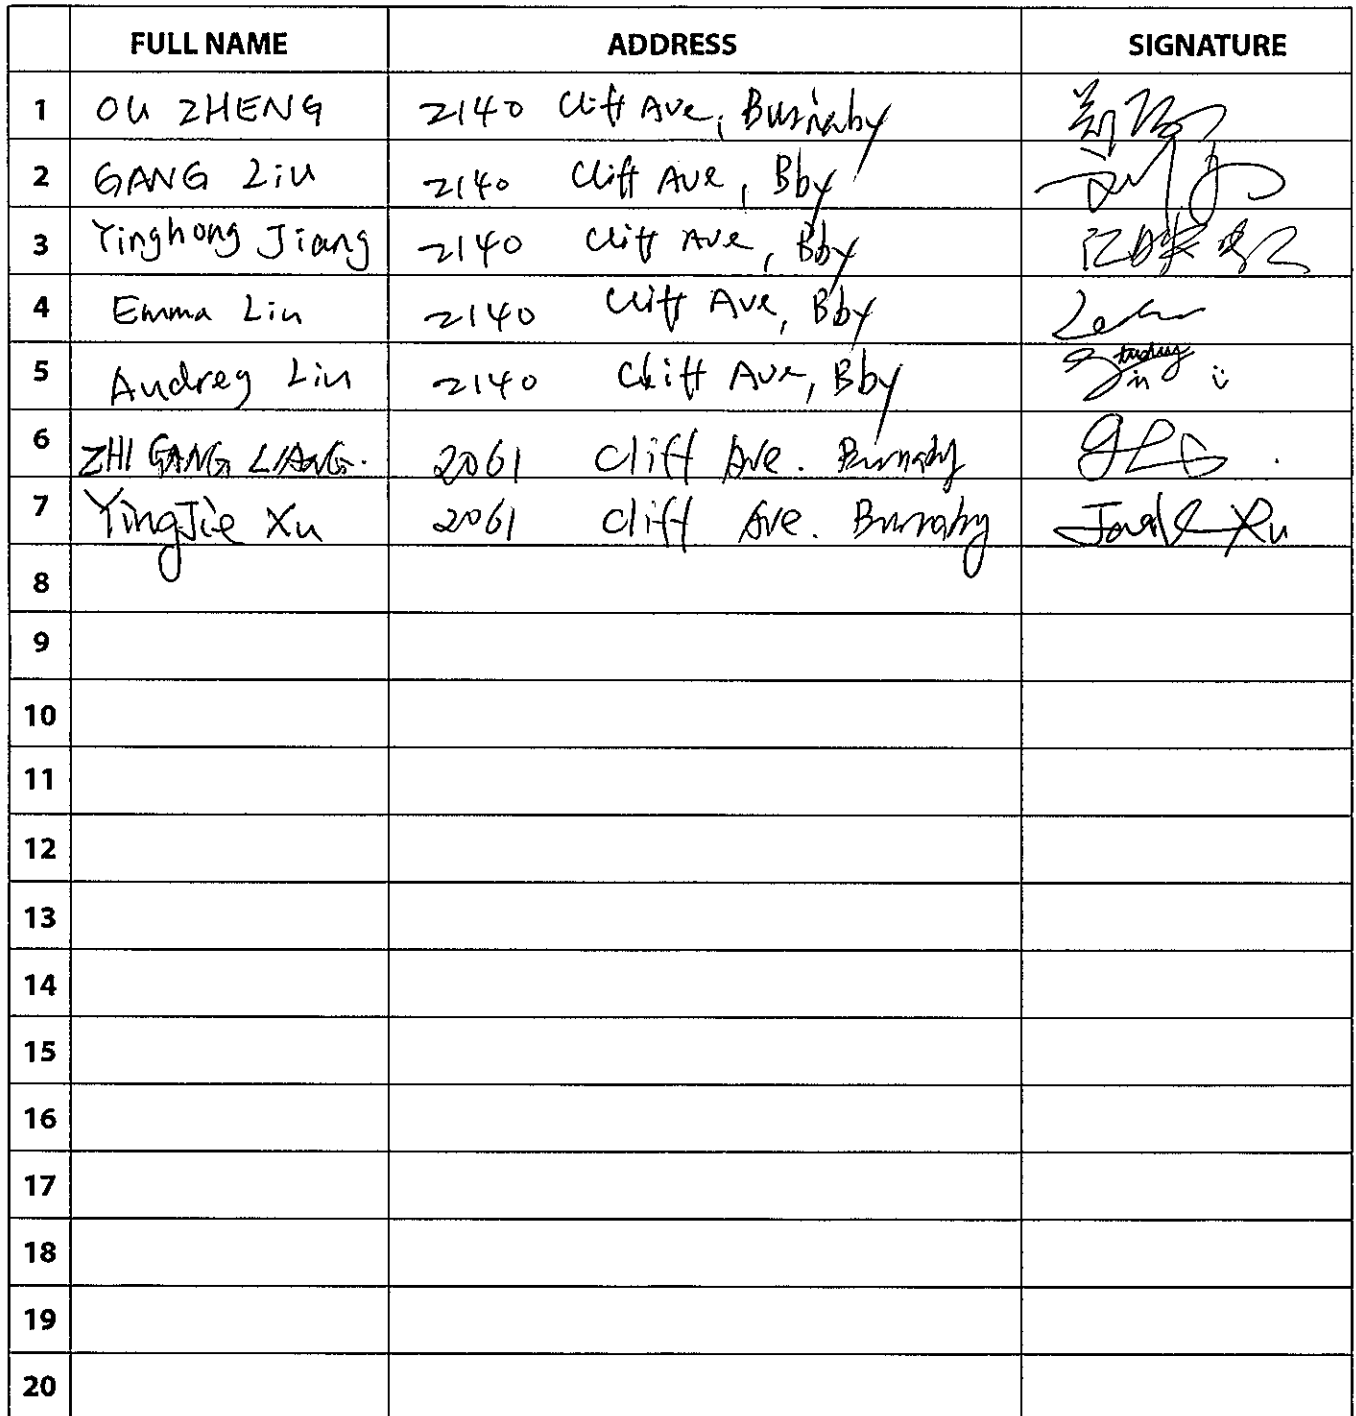 FULL NAME ADDRESS SIGNATURE
1 OU ZHENG 2140 Cliff Ave, Burnaby 郑
2 GANG Liu 2140 Cliff Ave, Bby 刘
3 Yinghong Jiang 2140 Cliff Ave, Bby 江映红
4 Emma Liu 2140 Cliff Ave, Bby
5 Audrey Liu 2140 Cliff Ave, Bby
6 ZHI GANG LIANG. 2061 Cliff Ave. Burnaby
7 YingJie Xu 2061 Cliff Ave. Burnaby Xu
8
9
10
11
12
13
14
15
16
17
18
19
20